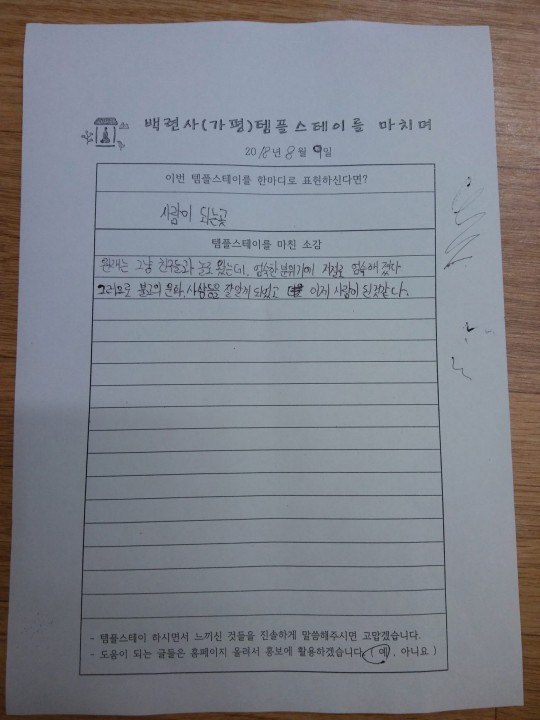 백련사(가평)템플스테이를 마치며
2018년 8월 9일
이번 템플스테이를 한마디로 표현하신다면?
사람이 되는곳
템플스테이를 마친 소감
원래는 그냥 친구들과 놀로 왔는데, 엄숙한 분위기에 저절로 엄숙해 졌다
그러므로 불교의 문화, 사상등을 잘알게 되었고 이제 사람이 된것같다.
- 템플스테이 하시면서 느끼신 것들을 진솔하게 말씀해주시면 고맙겠습니다.
- 도움이 되는 글들은 홈페이지 올려서 홍보에 활용하겠습니다.( 예 , 아니요 )